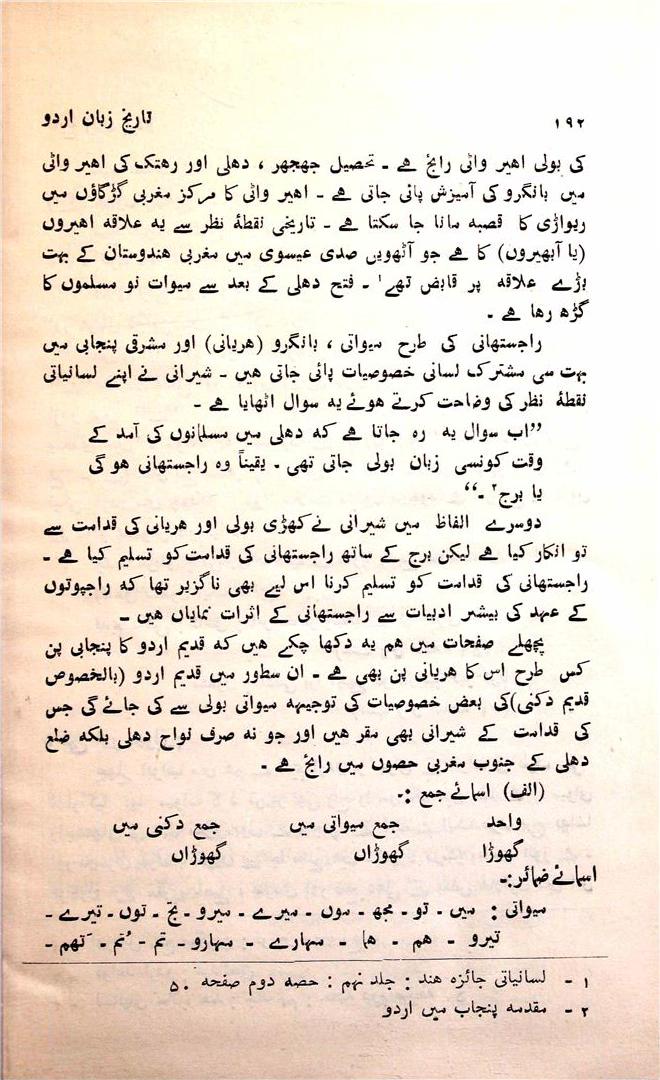 ۱۹۲ تاریخ زبان اردو
کی بولی اھیر واٹی رائج ہے ۔ تحصیل جھجھر ، دھلی اور رھتک کی اھیر واٹی
میں بانگرو کی آمیزش پائی جاتی ہے ۔ اھیر واٹی کا مرکز مغربی گڑگاؤں میں
ریواڑی کا قصبہ مانا جا سکتا ہے ۔ تاریخی نقطۂ نظر سے یہ علاقہ اھیروں
(یا آبھیروں) کا ہے جو آٹھویں صدی عیسوی میں مغربی ھندوستان کے بہت
بڑے علاقہ پر قابض تھے¹ ۔ فتح دھلی کے بعد سے میوات نو مسلموں کا
گڑھ رھا ہے ۔
راجستھانی کی طرح میواتی ، بانگرو (ھریانی) اور مشرقی پنجابی میں
بہت سی مشترک لسانی خصوصیات پائی جاتی ھیں ۔ شیرانی نے اپنے لسانیاتی
نقطۂ نظر کی وضاحت کرتے ھوئے یہ سوال اٹھایا ہے ۔
”اب سوال یہ رہ جاتا ہے کہ دھلی میں مسلمانوں کی آمد کے
وقت کونسی زبان بولی جاتی تھی ۔ یقیناً وہ راجستھانی ھو گی
یا برج² ۔“
دوسرے الفاظ میں شیرانی نے کھڑی بولی اور ھریانی کی قدامت سے
تو انکار کیا ہے لیکن برج کے ساتھ راجستھانی کی قدامت کو تسلیم کیا ہے ۔
راجستھانی کی قدامت کو تسلیم کرنا اس لیے بھی ناگزیر تھا کہ راجپوتوں
کے عہد کی بیشتر ادبیات سے راجستھانی کے اثرات نمایاں ھیں ۔
پچھلے صفحات میں ھم یہ دکھا چکے ھیں کہ قدیم اردو کا پنجابی پن
کس طرح اس کا ھریانی پن بھی ہے ۔ ان سطور میں قدیم اردو (بالخصوص
قدیم دکنی) کی بعض خصوصیات کی توجیہہ میواتی بولی سے کی جائے گی جس
کی قدامت کے شیرانی بھی مقر ھیں اور جو نہ صرف نواح دھلی بلکہ ضلع
دھلی کے جنوب مغربی حصوں میں رائج ہے ۔
(الف) اسمائے جمع :۔
واحد جمع میواتی میں جمع دکنی میں
گھوڑا گھوڑاں گھوڑاں
اسمائے ضمائر:۔
میواتی : میں ۔ تو ۔ مجھ ۔ موں ۔ میرے ۔ میرو ۔ تج ۔ توں ۔ تیرے ۔
تیرو ۔ ھم ۔ ھا ۔ مہارے ۔ مہارو ۔ تم ۔ تُم ۔ تَھم ۔
۱ ۔ لسانیاتی جائزہ ھند : جلد نہم : حصہ دوم صفحہ ۵۰
۲ ۔ مقدمہ پنجاب میں اردو